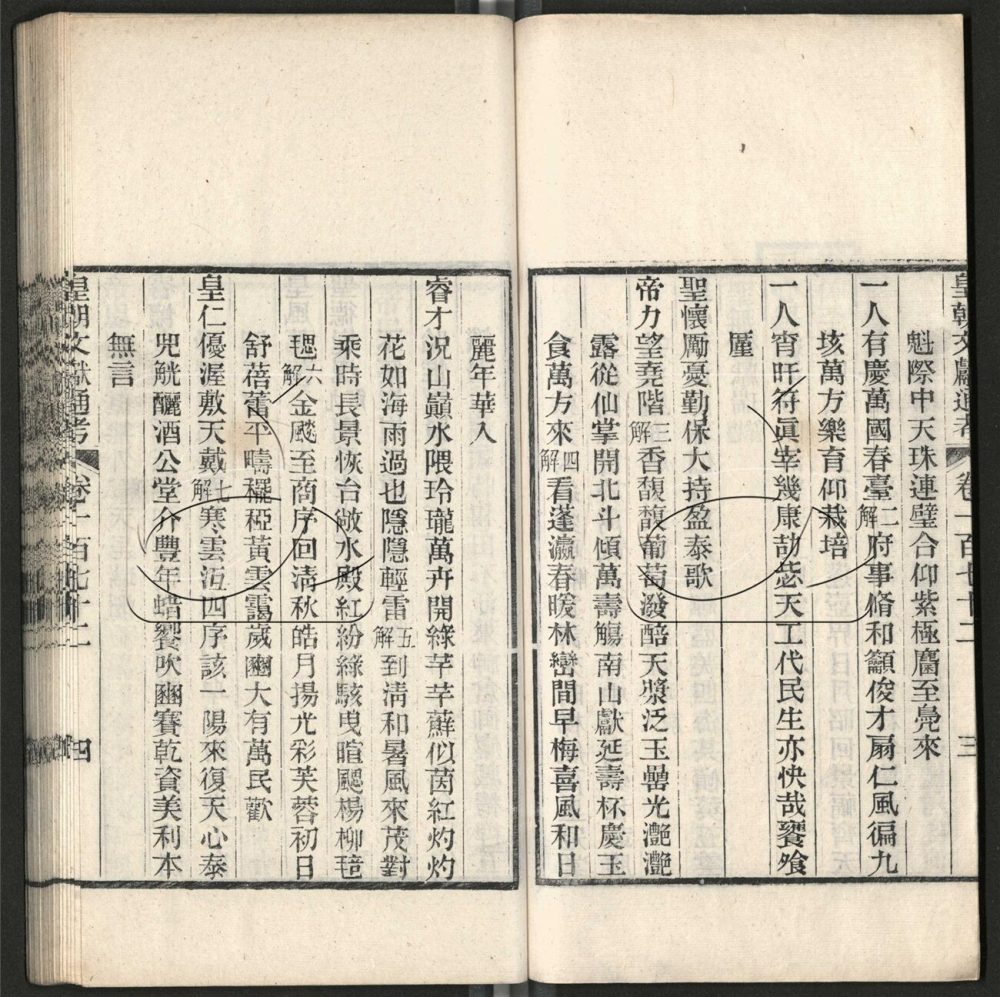 皇朝文獻通考 卷一百七十二 三
魁際中天珠連璧合仰紫極麕至鳧來
一人有慶萬國春臺二解府事脩和籲俊才扇仁風徧九
垓萬方樂育仰栽培
一人宵旰符眞宰幾康劼毖天工代民生亦快哉饔飧
厪
聖懷勵憂勤保大持盈泰歌
帝力望堯階三解香馥馥葡萄潑醅天漿泛玉罍光灧灧
露從仙掌開北斗傾萬壽觴南山獻延壽杯慶玉
食萬方來四解看蓬瀛春暖林巒間早梅喜風和日
麗年華入
睿才況山巔水隈玲瓏萬卉開綠芊芊蘚似茵紅灼灼
花如海雨過也隱隱輕雷五解到清和暑風來茂對
乘時長景恢台敞水殿紅紛綠駭曳暄颸楊柳毰
毸六解金飈至商序回淸秋皓月揚光彩芙蓉初日
舒蓓蕾平疇䆉稏黃雲靄歲豳大有萬民歡
皇仁優渥敷天戴七解寒雲冱四序該一陽來復天心泰
兕觥釃酒公堂介豐年蜡饗吹豳賽乾資美利本
無言
皇朝文獻通考 卷一百七十二 四